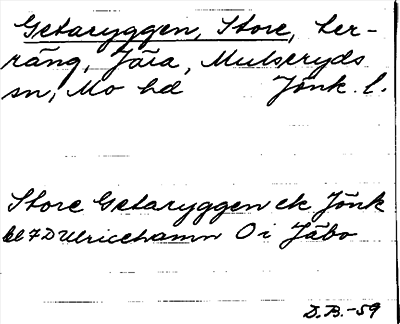 Getaryggen, Store, ter-
räng, Jära, Mulseryds
sn, Mo hd Jönk. l.
Store Getaryggen ek Jönk
bl 7D Ulricehamn O i Jäbo
D.B.-59